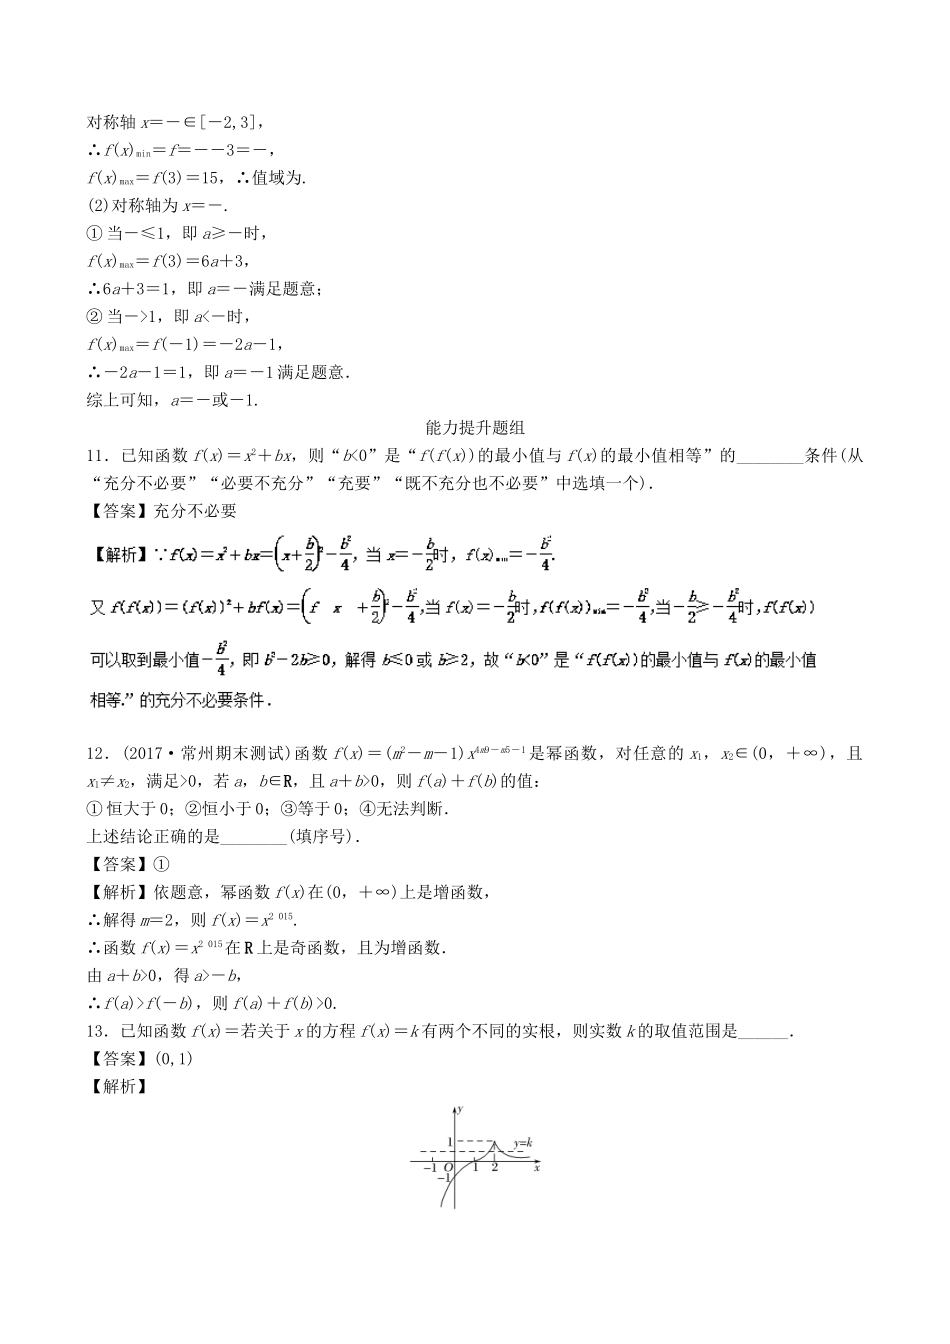 对称轴 x＝－∈[－2,3]，
∴f(x)min＝f＝－－3＝－，
f(x)max＝f(3)＝15，∴值域为.
(2)对称轴为 x＝－.
① 当－≤1，即 a≥－时，
f(x)max＝f(3)＝6a＋3，
∴6a＋3＝1，即 a＝－满足题意；
② 当－>1，即 a<－时，
f(x)max＝f(－1)＝－2a－1，
∴－2a－1＝1，即 a＝－1 满足题意．
综上可知，a＝－或－1.
能力提升题组
11．已知函数 f(x)＝x²＋bx，则“b<0”是“f(f(x))的最小值与 f(x)的最小值相等”的________条件(从
“充分不必要”“必要不充分”“充要”“既不充分也不必要”中选填一个)．
【答案】充分不必要
【解析】∵f(x)＝x²＋bx＝(x＋b/2)²－b²/4，当 x＝－b/2时，f(x)min＝－b²/4.
又 f(f(x))＝(f(x))²＋bf(x)＝(f x ＋b/2)²－b²/4,当 f(x)＝－b/2时,f(f(x))min＝－b²/4,当－b/2≥－b²/4时,f(f(x))
可以取到最小值－b²/4，即 b²－2b≥0，解得 b≤0 或 b≥2，故“b<0”是“f(f(x))的最小值与 f(x)的最小值
相等.”的充分不必要条件．
12．(2017·常州期末测试)函数 f(x)＝(m²－m－1)x4m9－m5－1是幂函数，对任意的 x₁，x₂∈(0，＋∞)，且
x₁≠x₂，满足>0，若 a，b∈R，且 a＋b>0，则 f(a)＋f(b)的值：
① 恒大于 0；②恒小于 0；③等于 0；④无法判断．
上述结论正确的是________(填序号)．
【答案】①
【解析】依题意，幂函数 f(x)在(0，＋∞)上是增函数，
∴解得 m＝2，则 f(x)＝x² ⁰¹⁵.
∴函数 f(x)＝x² ⁰¹⁵在 R 上是奇函数，且为增函数．
由 a＋b>0，得 a>－b，
∴f(a)>f(－b)，则 f(a)＋f(b)>0.
13．已知函数 f(x)＝若关于 x 的方程 f(x)＝k 有两个不同的实根，则实数 k 的取值范围是______．
【答案】(0,1)
【解析】
y
1
y=k
−1 O 1 2 x
−1